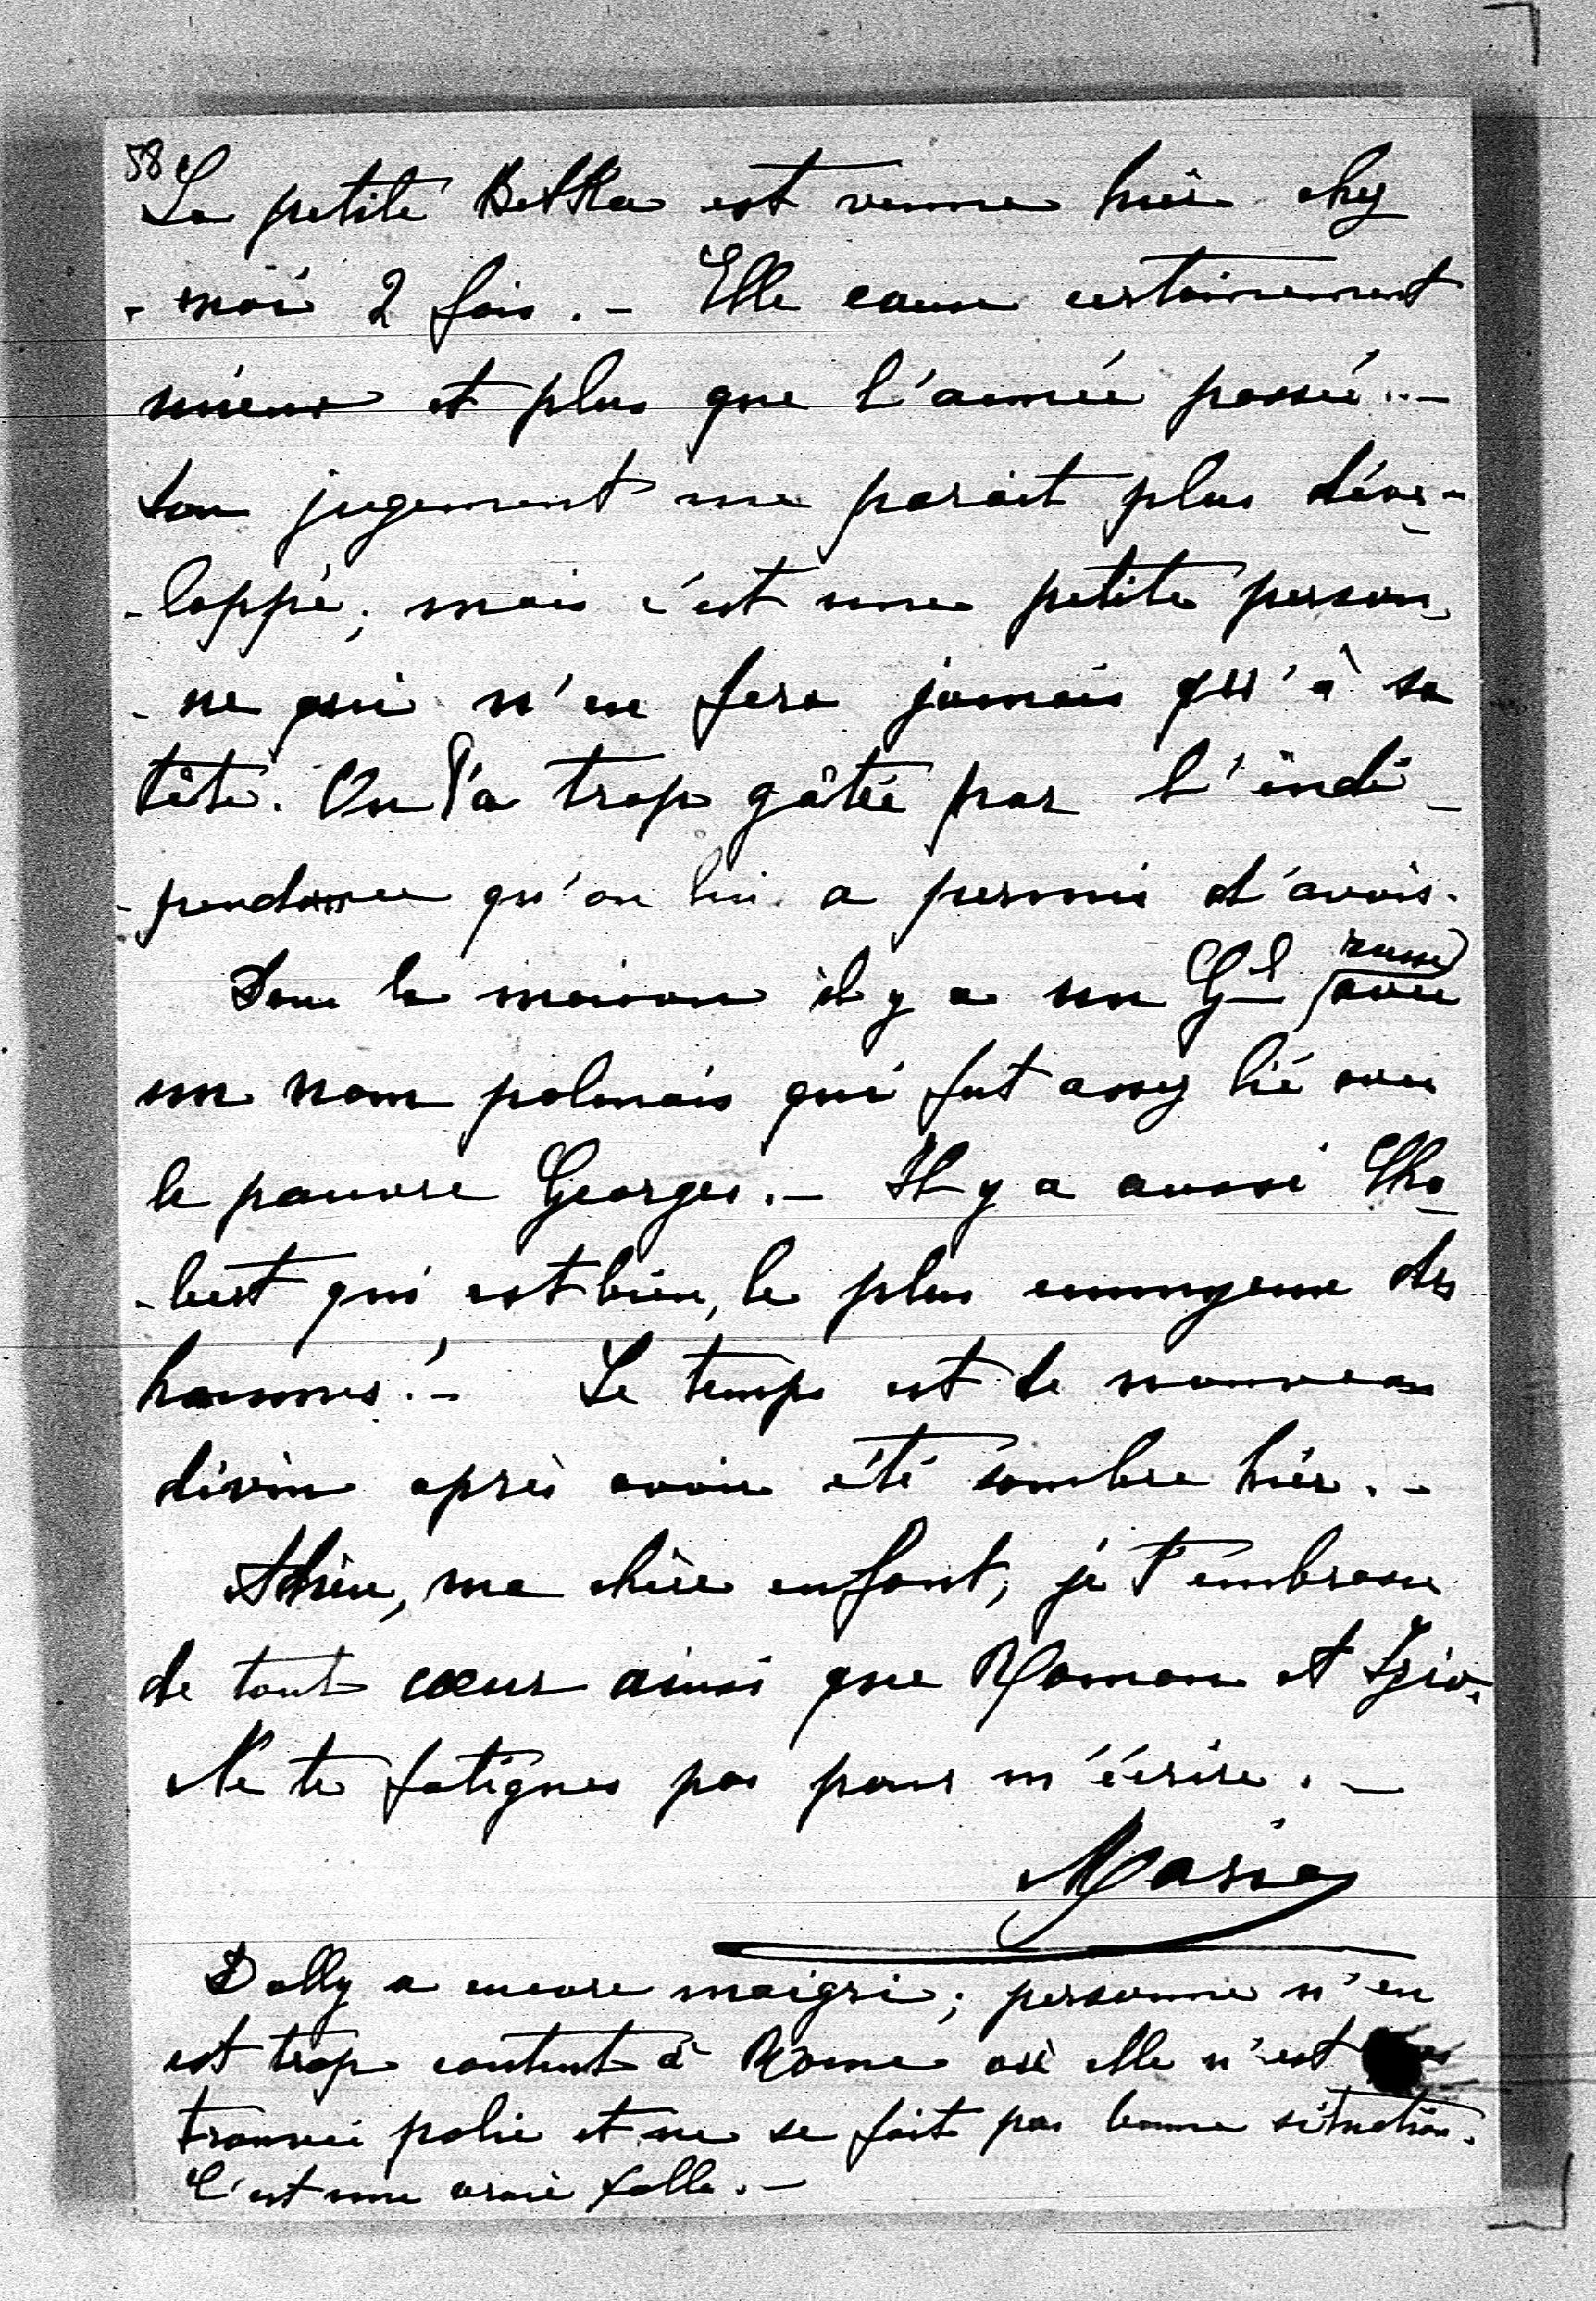 58
La petite Betka est venue hier chez
- moi 2 fois. - Elle cause certainement
mieux et plus que l'année passée. -
Son jugement me parait plus déve-
- loppé; mais c'est une petite person-
- ne qui n'en fera jamais qu'à sa
tête. On l'a trop gâtée par l'indé-
- pendance qu'on lui a permis d'avoir.
Dans la maison il y a un Gl russe avec
un nom polonais qui fut assez lié avec
le pauvre Georges. - Il y a aussi
qui est bien, le plus ennuyeux des
hommes! - Le temps est de nouveau
divin après avoir été sombre hier. -
Adieu, ma chère enfant, je t'embrasse
de tout cœur ainsi que Roman et
Ne te fatigues pas pour m'écrire. -
Marie
Dolly a encore maigri; personne n'en
est trop content à Rome où elle n'est pas
trouvée polie et ne se fait pas bonne situation.
C'est une vraie folle. -